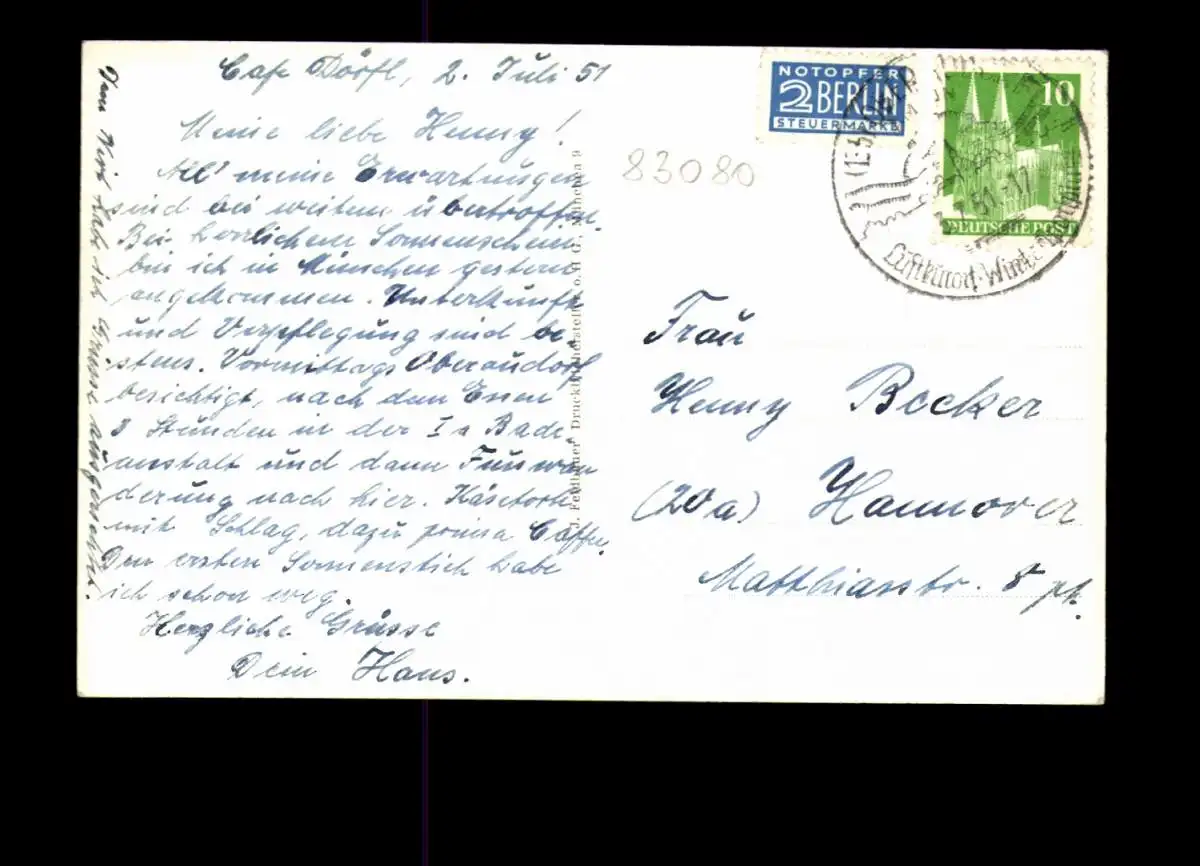 Cafe Dörfl, 2. Juli 51
Meine liebe Henny!
All' meine Erwartungen
sind bei weitem übertroffen.
Bei herrlichem Sonnenschein
bin ich in München gestern
angekommen. Unterkunft
und Verpflegung sind be-
stens. Vormittags Oberaudorf
besichtigt, nach dem Essen
3 Stunden in der Ia Bade-
anstalt und dann
derung nach hier. Käsetorte
mit Schlag, dazu prima Caffee.
Den ersten Sonnenstich habe
ich schon weg.
Herzliche Grüsse
Dein Hans.
Dem Wirt hab ich Grüsse ausgerichtet.
München 9
NOTOPFER
2 BERLIN
STEUERMARKE
83080
10
DEUTSCHE POST
7.51.-17
Luftkurort
Frau
Henny Becker
(20a) Hannover
Matthiasstr. 8 pt.